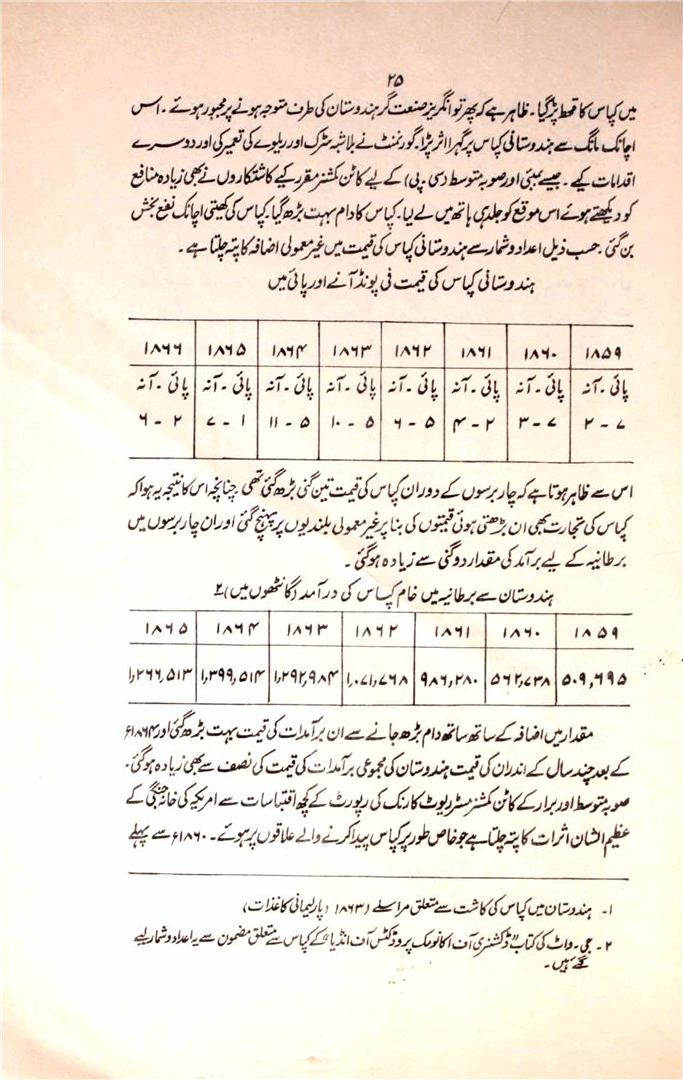 ۲۵
میں کپاس کا قحط پڑ گیا۔ ظاہر ہے کہ پھر تو انگریز صنعت گر ہندوستان کی طرف متوجہ ہونے پر مجبور ہوئے۔ اس
اچانک مانگ سے ہندوستانی کپاس پر گہرا اثر پڑا۔ گورنمنٹ نے بلاشبہ سڑک اور ریلوے کی تعمیر کی اور دوسرے
اقدامات کیے۔ جیسے بمبئی اور صوبہ متوسط (سی۔ پی) کے لیے کاٹن کمشنر مقرر کیے کاشتکاروں نے بھی زیادہ منافع
کو دیکھتے ہوئے اس موقع کو جلد ہی ہاتھ میں لے لیا۔ کپاس کا دام بہت بڑھ گیا۔ کپاس کی کھیتی اچانک نفع بخش
بن گئی۔ حسب ذیل اعداد و شمار سے ہندوستانی کپاس کی قیمت میں غیر معمولی اضافہ کا پتہ چلتا ہے۔
ہندوستانی کپاس کی قیمت فی پونڈ آنے اور پائی میں
۱۸۵۹ ۱۸۶۰ ۱۸۶۱ ۱۸۶۲ ۱۸۶۳ ۱۸۶۴ ۱۸۶۵ ۱۸۶۶
پائی۔ آنہ پائی۔ آنہ پائی۔ آنہ پائی۔ آنہ پائی۔ آنہ پائی۔ آنہ پائی۔ آنہ پائی۔ آنہ
۷ - ۲ ۷ - ۳ ۲ - ۴ ۵ - ۶ ۵ - ۱۰ ۵ - ۱۱ ۱ - ۷ ۲ - ۶
اس سے ظاہر ہوتا ہے کہ چار برسوں کے دوران کپاس کی قیمت تین گنی بڑھ گئی تھی چنانچہ اس کا نتیجہ یہ ہوا کہ
کپاس کی تجارت بھی ان بڑھتی ہوئی قیمتوں کی بنا پر غیر معمولی بلندیوں پر پہنچ گئی اور ان چار برسوں میں
برطانیہ کے لیے برآمد کی مقدار دوگنی سے زیادہ ہو گئی۔
ہندوستان سے برطانیہ میں خام کپاس کی درآمد (گانٹھوں میں) ۲
۱۸۵۹ ۱۸۶۰ ۱۸۶۱ ۱۸۶۲ ۱۸۶۳ ۱۸۶۴ ۱۸۶۵
۵۰۹,۶۹۵ ۵۶۲,۷۳۸ ۹۸۶,۲۸۰ ۱,۰۷۱,۷۶۸ ۱,۲۹۲,۹۸۴ ۱,۳۹۹,۵۱۴ ۱,۲۶۶,۵۱۳
مقدار میں اضافہ کے ساتھ ساتھ دام بڑھ جانے سے ان برآمدات کی قیمت بہت بڑھ گئی اور ۱۸۶۴ء
کے بعد چند سال کے اندر ان کی قیمت ہندوستان کی مجموعی برآمدات کی قیمت کی نصف سے بھی زیادہ ہو گئی۔
صوبہ متوسط اور برار کے کاٹن کمشنر مسٹر ریوٹ کارنک کی رپورٹ کے کچھ اقتباسات سے امریکہ کی خانہ جنگی کے
عظیم الشان اثرات کا پتہ چلتا ہے جو خاص طور پر کپاس پیدا کرنے والے علاقوں پر ہوئے۔ ۱۸۶۰ء سے پہلے
۱۔ ہندوستان میں کپاس کی کاشت سے متعلق مراسلے (۱۸۶۳ پارلیمانی کاغذات)
۲۔ جی۔ واٹ کی کتاب "ڈکشنری آف اکانومک پروڈکٹس آف انڈیا" کے کپاس سے متعلق مضمون سے یہ اعداد و شمار لیے
گئے ہیں۔